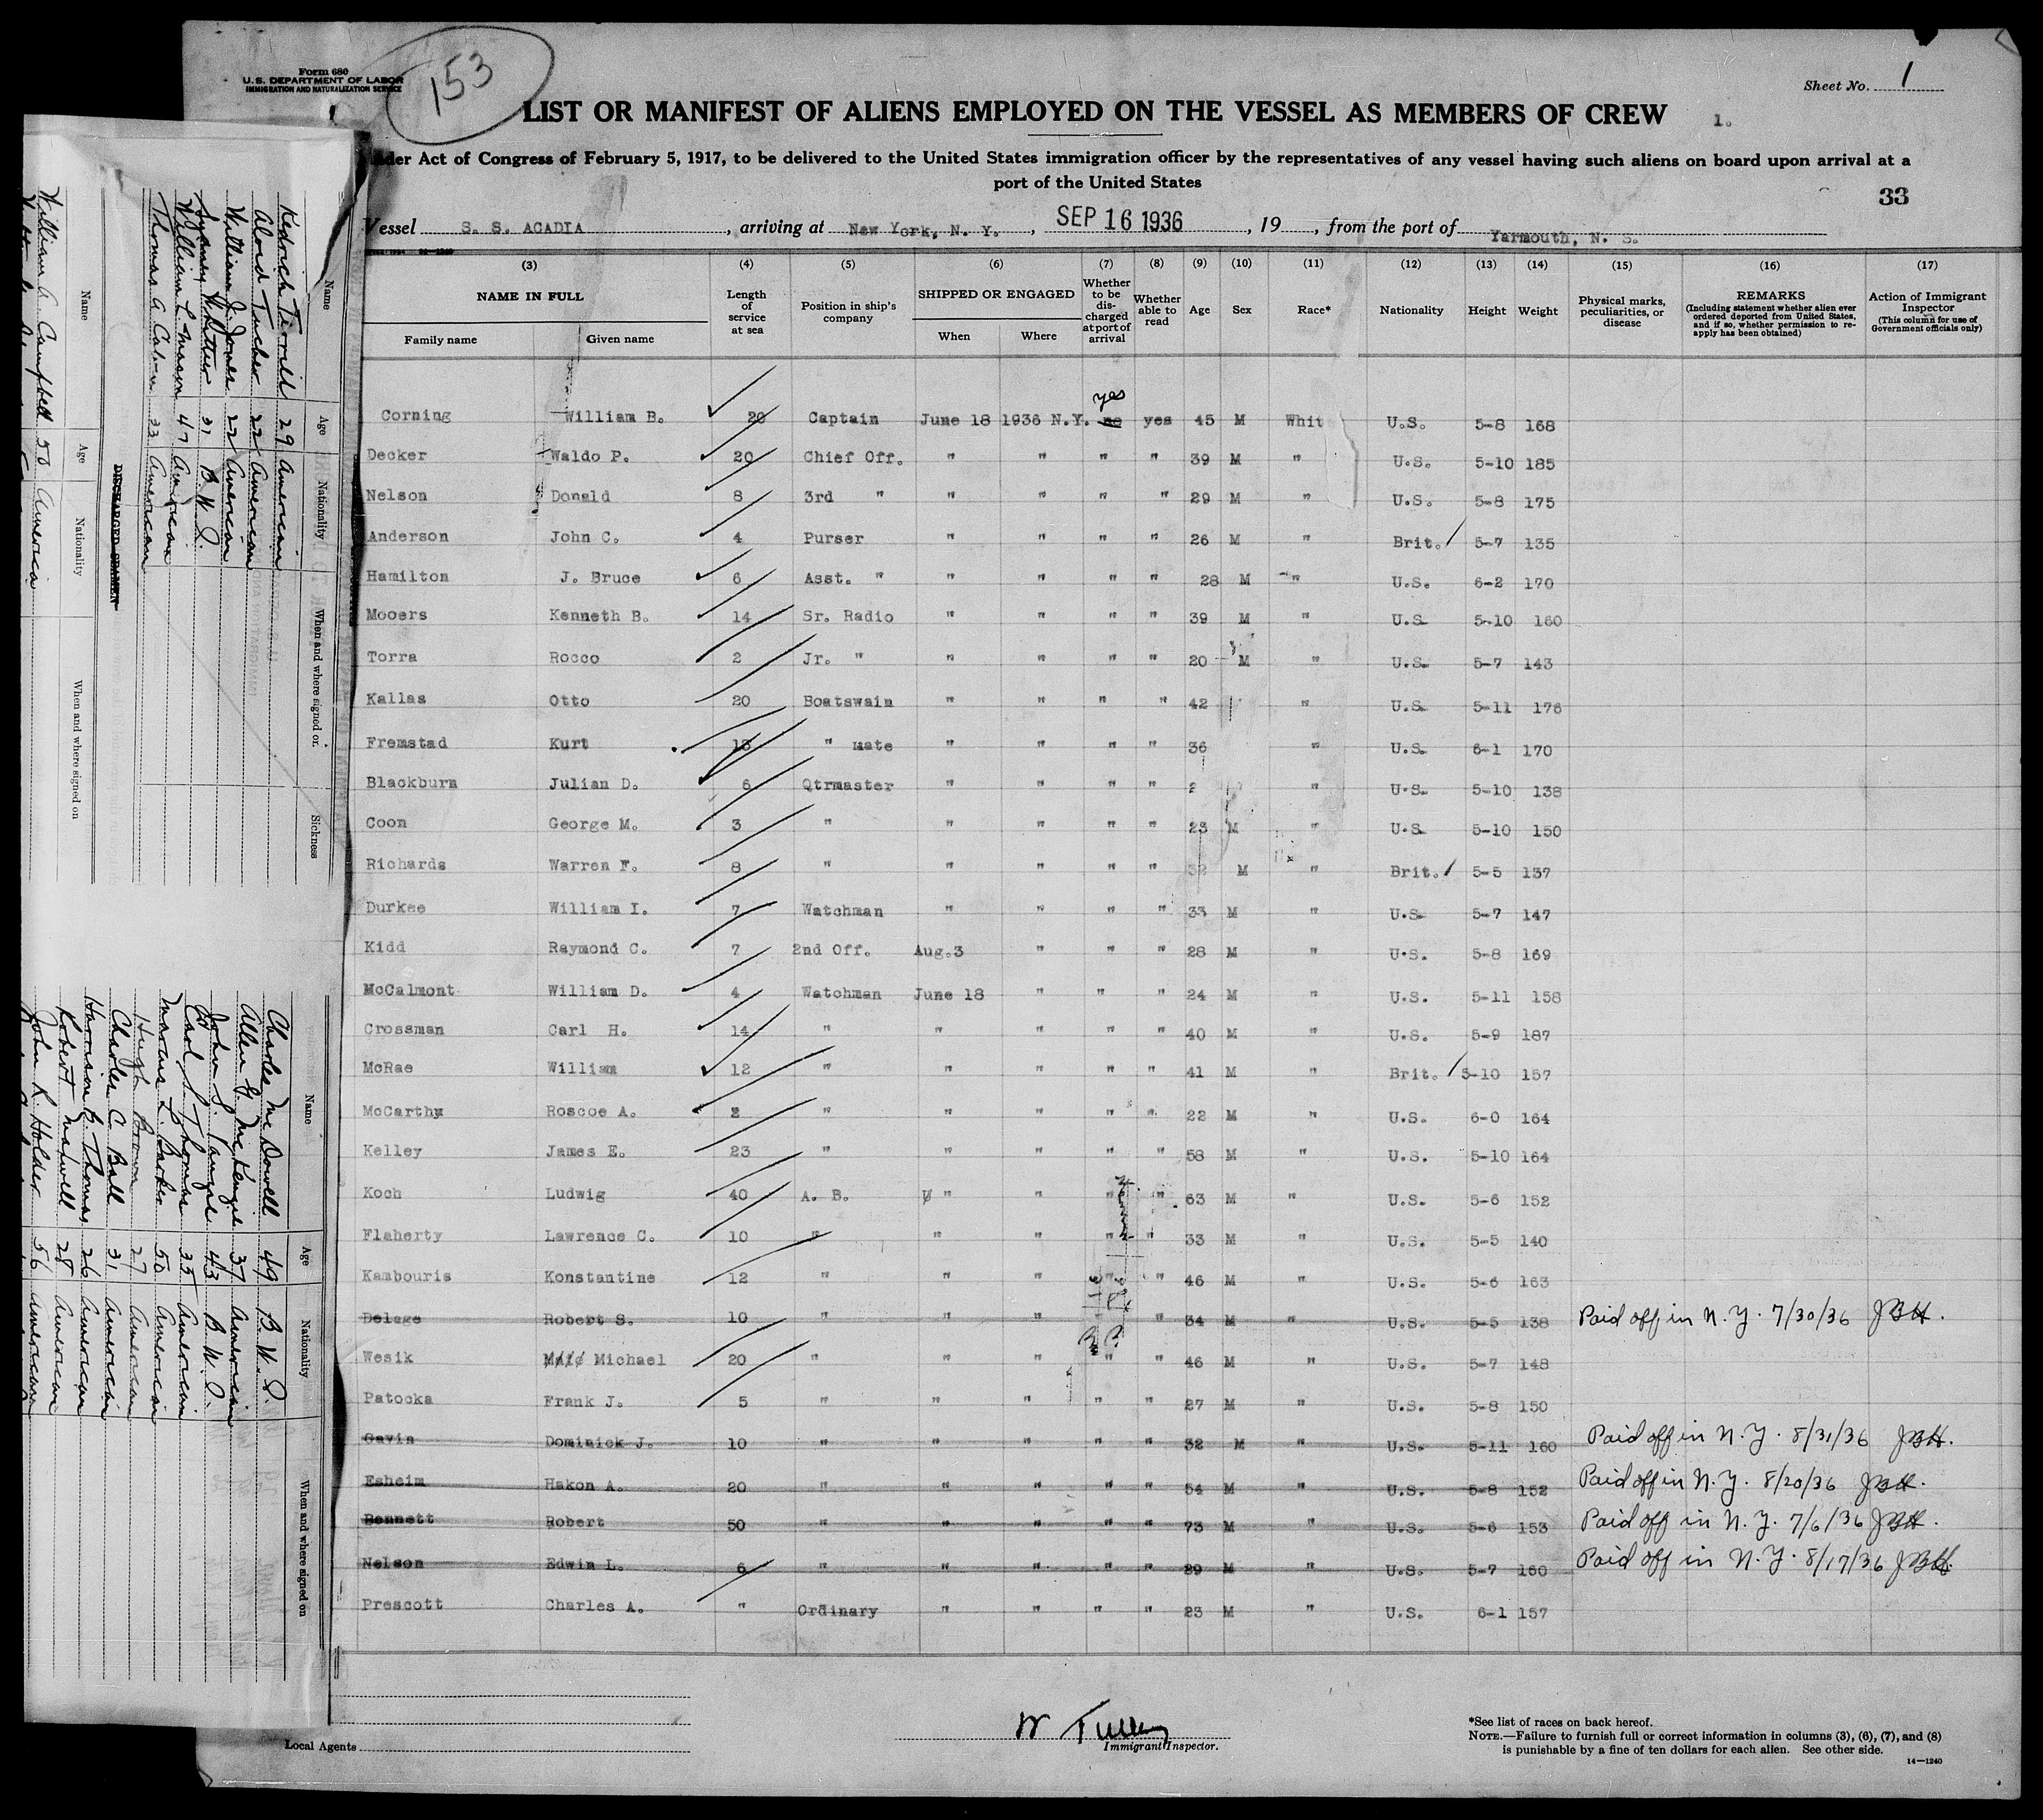 Form 680
U. S. DEPARTMENT OF LABOR
IMMIGRATION AND NATURALIZATION SERVICE
153
Sheet No. 1
LIST OR MANIFEST OF ALIENS EMPLOYED ON THE VESSEL AS MEMBERS OF CREW
1.
Act of Congress of February 5, 1917, to be delivered to the United States immigration officer by the representatives of any vessel having such aliens on board upon arrival at a
port of the United States
33
Vessel S. S. ACADIA, arriving at New York, N. Y., SEP 16 1936, 19, from the port of Yarmouth, N. S.
(3) (4) (5) (6) (7) (8) (9) (10) (11) (12) (13) (14) (15) (16) (17)
NAME IN FULL Family name Given name
Length of service at sea
Position in ship's company
SHIPPED OR ENGAGED When Where
Whether to be discharged at port of arrival
Whether able to read
Age Sex Race* Nationality Height Weight
Physical marks, peculiarities, or disease
REMARKS (Including statement whether alien ever ordered deported from United States, and if so, whether permission to reapply has been obtained)
Action of Immigrant Inspector (This column for use of Government officials only)
yes
Corning William B. 20 Captain June 18 1936 N.Y. no yes 45 M Whit U.S. 5-8 168
Decker Waldo P. 20 Chief Off. " " " " 39 M " U.S. 5-10 185
Nelson Donald 8 3rd " " " " " 29 M " U.S. 5-8 175
Anderson John C. 4 Purser " " " " 26 M " Brit. 5-7 135
Hamilton J. Bruce 6 Asst. " " " " " 28 M " U.S. 6-2 170
Mooers Kenneth B. 14 Sr. Radio " " " " 39 M " U.S. 5-10 160
Torra Rocco 2 Jr. " " " " " 20 M " U.S. 5-7 143
Kallas Otto 20 Boatswain " " " " 42 " U.S. 5-11 176
Fremstad Kurt " Mate " " " " 36 " U.S. 6-1 170
Blackburn Julian D. 6 Qtrmaster " " " " 2 " U.S. 5-10 138
Coon George M. 3 " " " " " 23 M " U.S. 5-10 150
Richards Warren F. 8 " " " " " 32 M " Brit. 5-5 137
Durkee William I. 7 Watchman " " " " 33 M " U.S. 5-7 147
Kidd Raymond C. 7 2nd Off. Aug.3 " " " 28 M " U.S. 5-8 169
McCalmont William D. 4 Watchman June 18 " " " 24 M " U.S. 5-11 158
Crossman Carl H. 14 " " " " " 40 M " U.S. 5-9 187
McRae William 12 " " " " " 41 M " Brit. 5-10 157
McCarthy Roscoe A. 2 " " " " " 22 M " U.S. 6-0 164
Kelley James E. 23 " " " " " 58 M " U.S. 5-10 164
Koch Ludwig 40 A. B. " " " " 63 M " U.S. 5-6 152
Flaherty Lawrence C. 10 " " " " " 33 M " U.S. 5-5 140
Kambouris Konstantine 12 " " " " " 46 M " U.S. 5-6 163
Delage Robert S. 10 " " " " " 34 M " U.S. 5-5 138 Paid off in N. Y. 7/30/36 JBH.
Wesik Michael 20 " " " " " 46 M " U.S. 5-7 148
Patocka Frank J. 5 " " " " " 27 M " U.S. 5-8 150
Gavin Dominick J. 10 " " " " " 32 M " U.S. 5-11 160 Paid off in N. Y. 8/31/36 JBH.
Esheim Hakon A. 20 " " " " " 54 M " U.S. 5-8 152 Paid off in N. Y. 8/20/36 JBH.
Bennett Robert 50 " " " " " 73 M " U.S. 5-6 153 Paid off in N. Y. 7/6/36 JBH.
Nelson Edwin L. 6 " " " " " 29 M " U.S. 5-7 160 Paid off in N. Y. 8/17/36 JBH.
Prescott Charles A. " Ordinary " " " " 23 M " U.S. 6-1 157
Local Agents
W Tulley
Immigrant Inspector.
*See list of races on back hereof.
NOTE.—Failure to furnish full or correct information in columns (3), (6), (7), and (8)
is punishable by a fine of ten dollars for each alien. See other side.
14—1240
Name Age Nationality When and where signed on Sickness
Tirrill 29 American
Tucker 22 American
William J. Jones 22 American
Sydney 31 B. W. I.
William L. Mason 47 American
Thomas A. 33 American
DISCHARGED SEAMEN
Name Age Nationality When and where signed on
William A. Campbell 50 America
Name Age Nationality When and where signed on
Charles McDowell 49 B. W. I.
Allen G. McKenzie 37 American
John S. 43 B. W. I.
Carl S. Thomas 33 American
Marcus L. Barker 50 American
Hugh Brown 27 American
Charles C. Ball 31 American
Harrison B. Thomas 26 American
Robert Maxwell 28 American
John R. Holder 56 American